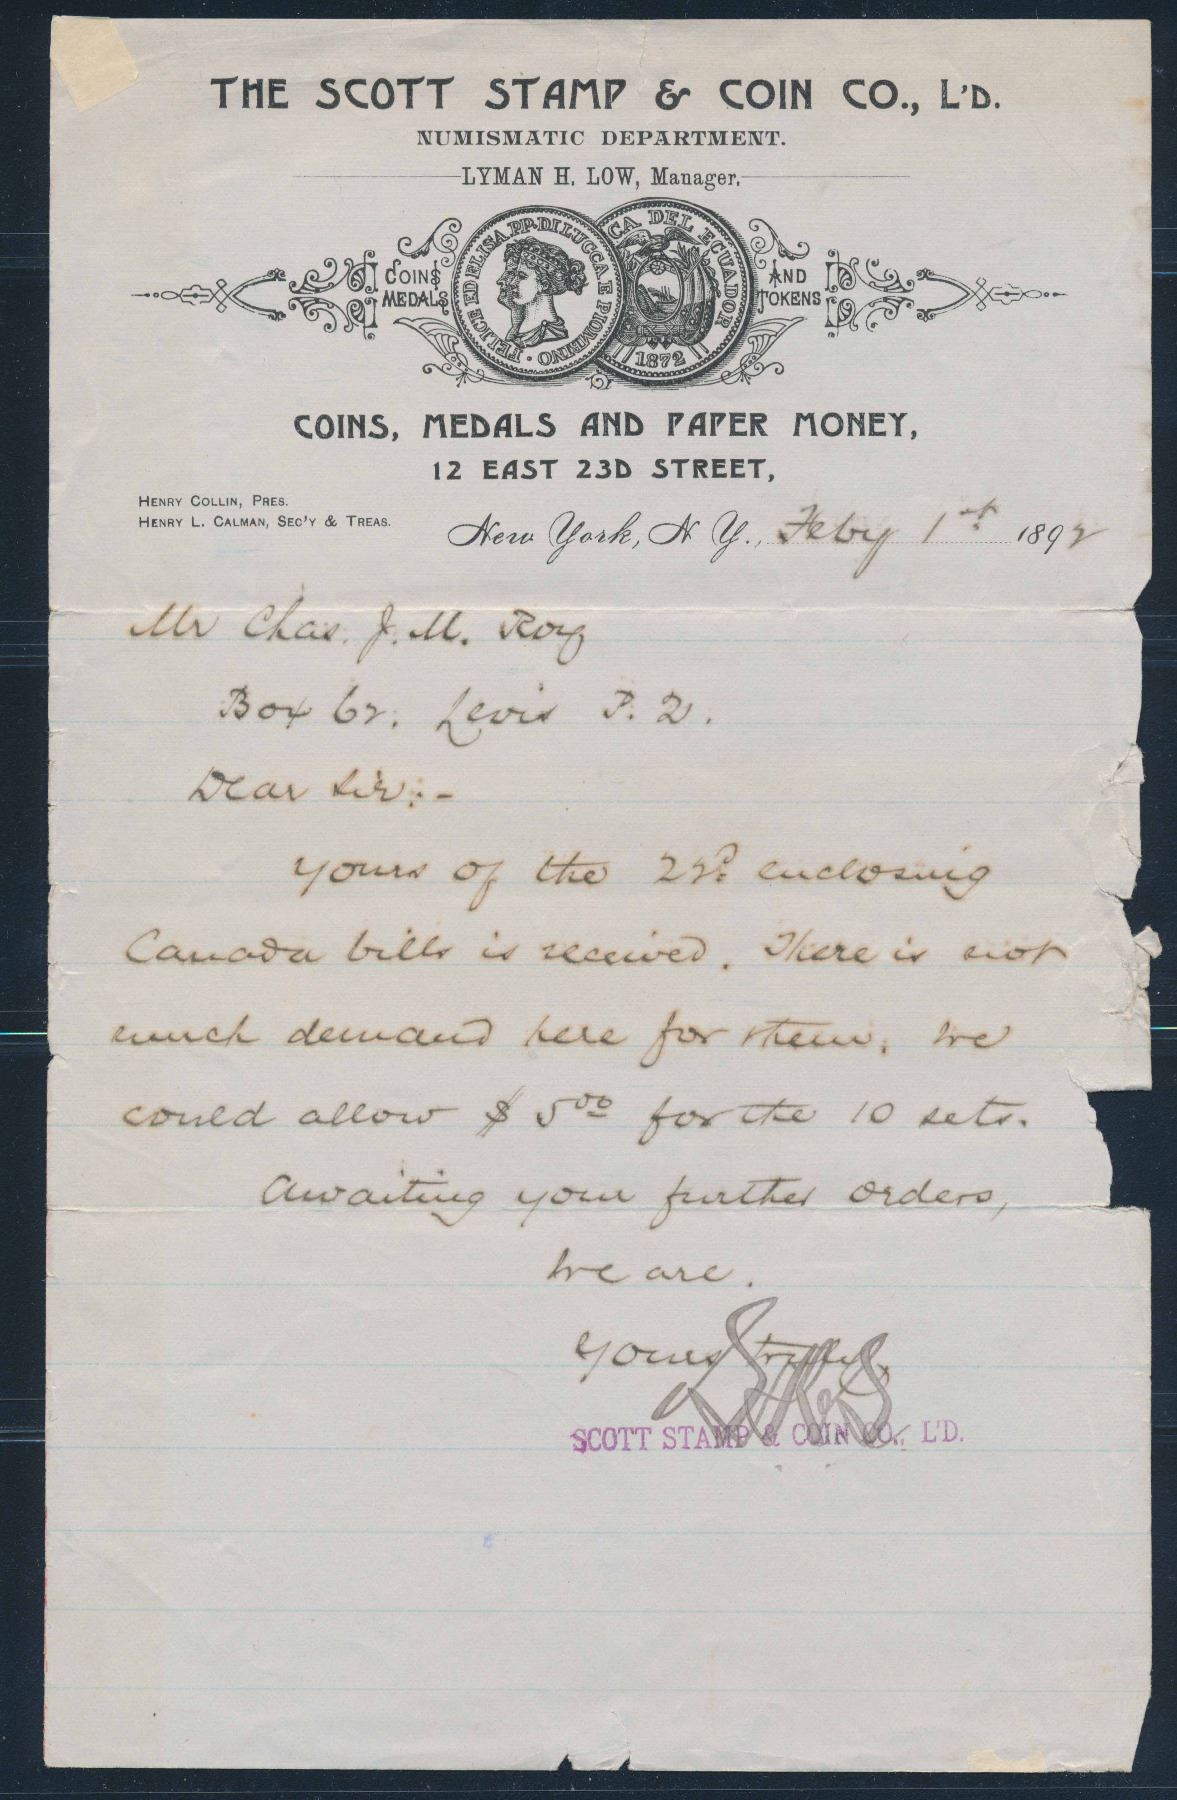 THE SCOTT STAMP & COIN CO., L'D.
NUMISMATIC DEPARTMENT.
LYMAN H. LOW, Manager.
COINS MEDALS
FELICE ED ELISA PP. DI LUCCA E PIOMBINO
CA DEL ECUADOR
1872
AND TOKENS
COINS, MEDALS AND PAPER MONEY,
12 EAST 23D STREET,
HENRY COLLIN, PRES.
HENRY L. CALMAN, SEC'Y & TREAS.
New York, N. Y., Feby 1st 1892
Mr Chas. J. M. Roy
Box 62. Levis P. Q.
Dear Sir:-
Yours of the 22d. enclosing
Canada bills is received. There is not
much demand here for them. We
could allow $5 00 for the 10 sets.
Awaiting your further orders,
We are.
Yours truly,
SCOTT STAMP & COIN CO., L'D.